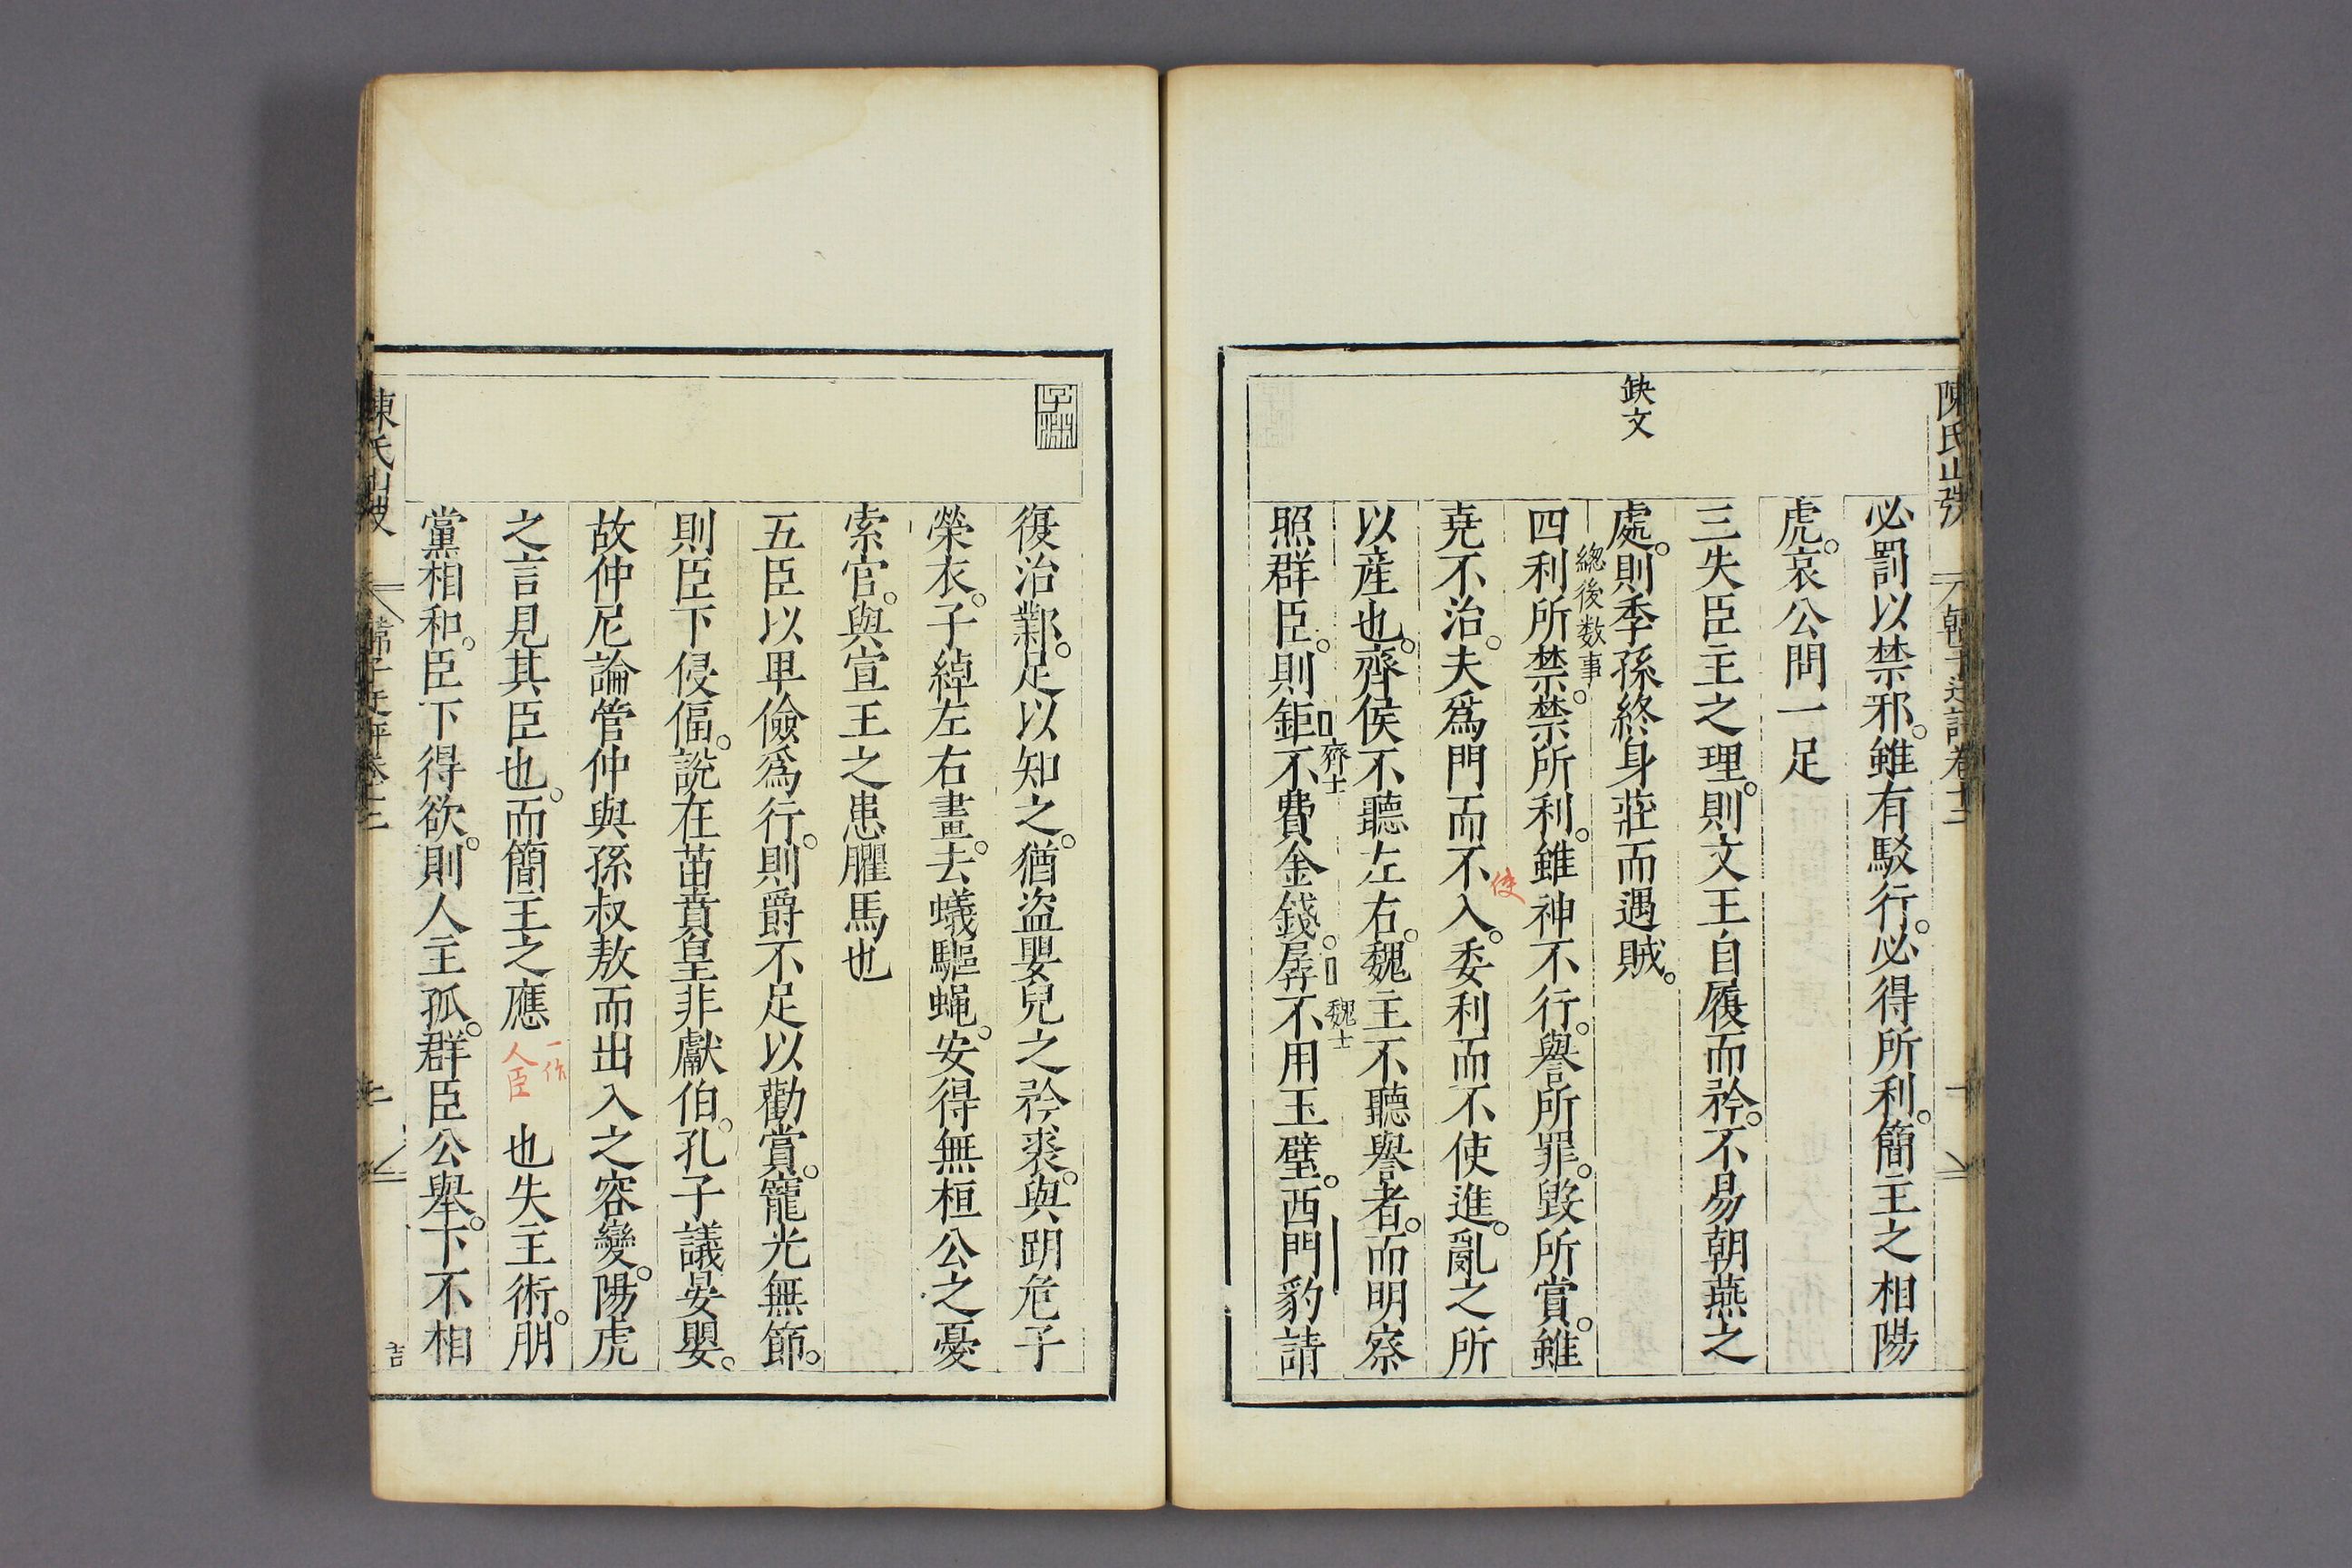 缺文
必罰以禁邪。雖有駁行。必得所利。簡主之相陽
虎。哀公問一足
三失臣主之理。則文王自履而矜。不易朝燕之
處。則季孫終身莊而遇賊。
總後数事
四利所禁。禁所利。雖神不行。譽所罪。毀所賞。雖
堯不治。夫爲門而不入。委利而不使進。亂之所
使
以産也。齊侯不聽左右。魏主不聽譽者。而明察
照群臣。則鉅不費金錢。孱不用玉璧。西門豹請
齊士
魏士
復治鄴。足以知之。猶盜嬰兒之矜裘。與跀危子
榮衣。子綽左右畫。去蟻驅蠅。安得無桓公之憂
索官。與宣王之患臞馬也
五臣以卑儉爲行。則爵不足以勸賞。寵光無節。
則臣下侵偪。說在苗賁皇非獻伯。孔子議晏嬰。
故仲尼論管仲與孫叔敖而出入之容變。陽虎
之言見其臣也。而簡王之應
一作
人臣
也失主術。朋
黨相和。臣下得欲。則人主孤。群臣公舉。下不相